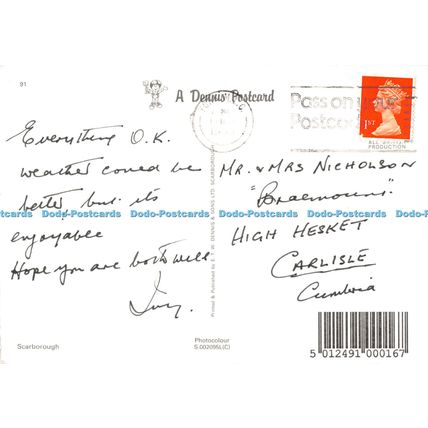 91
A Dennis Postcard
Pass on y
Postcod
1ST
PRODUCTION
Everything O.K.
weather could be
better but its
enjoyable
Hope you are both well
Ivy.
MR. & MRS NICHOLSON
"Braemount"
HIGH HESKET
CARLISLE
Cumbria
Dodo-Postcards Dodo-Postcards Dodo-Postcards Dodo-Postcards
Printed & Published by E. T. W. DENNIS & SONS LTD. SCARBOROUGH
Scarborough
Photocolour
S 002095L(C)
5 012491 000167